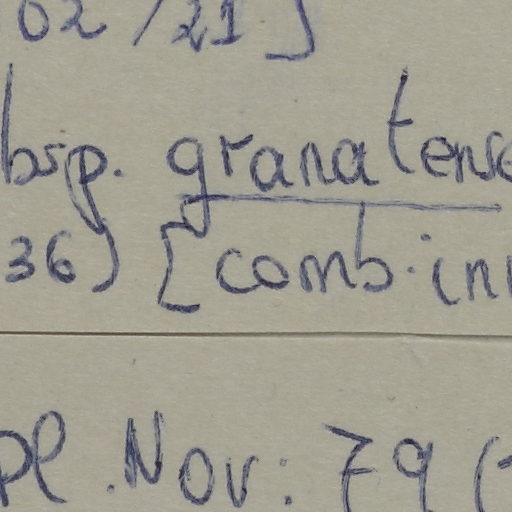 02/21]
bsp. granatense
36) [comb. in
Pl. Nov: 79 (